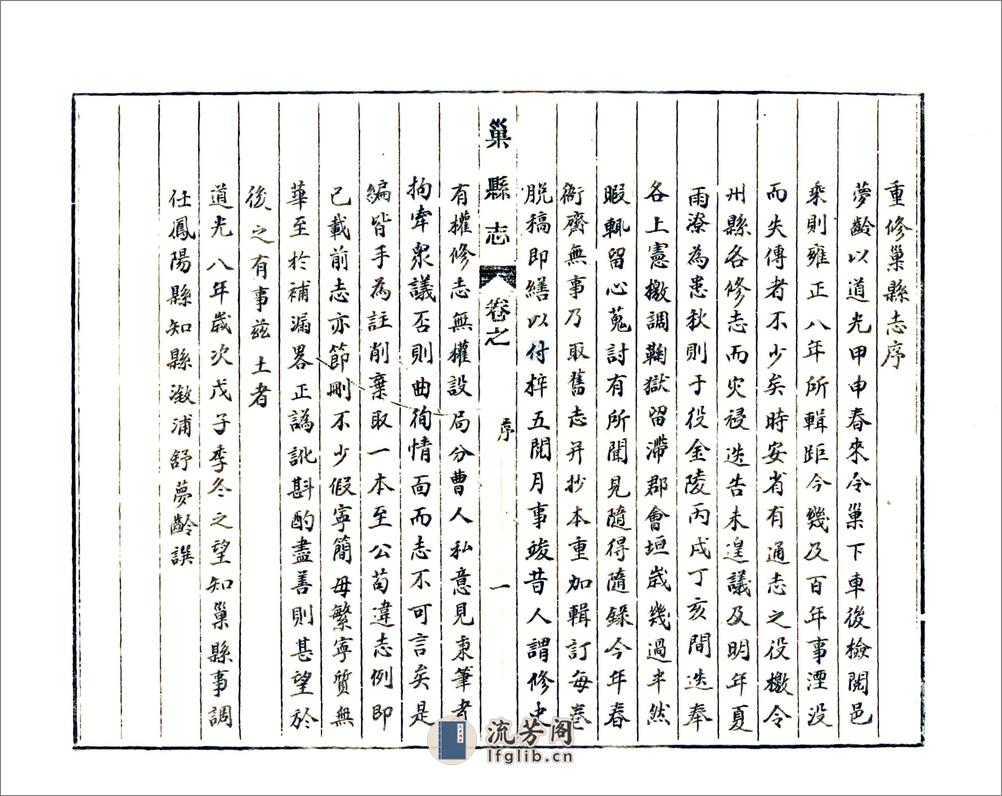 重修巢縣志序
夢齡以道光甲申春來令巢下車後檢閱邑
乘則雍正八年所輯距今幾及百年事湮沒
而失傳者不少矣時安省有通志之役檄令
州縣各修志而災祲迭告未遑議及明年夏
雨潦為患秋則于役金陵丙戌丁亥間迭奉
各上憲檄調鞠獄留滯郡會垣歲幾過半然
暇輒留心蒐討有所聞見隨得隨錄今年春
衙齋無事乃取舊志并抄本重加輯訂每卷
脫稿即繕以付梓五閱月事竣昔人謂修史
巢縣志 卷之 序 一
有權修志無權設局分曹人私意見秉筆者
拘牽眾議否則曲徇情面而志不可言矣是
編皆手為註削棄取一本至公苟違志例即
已載前志亦節刪不少假寧簡毋繁寧質無
華至於補漏畧正譌訛斟酌盡善則甚望於
後之有事茲土者
道光八年歲次戊子季冬之望知巢縣事調
任鳳陽縣知縣漵浦舒夢齡譔
流芳阁
lfglib.cn